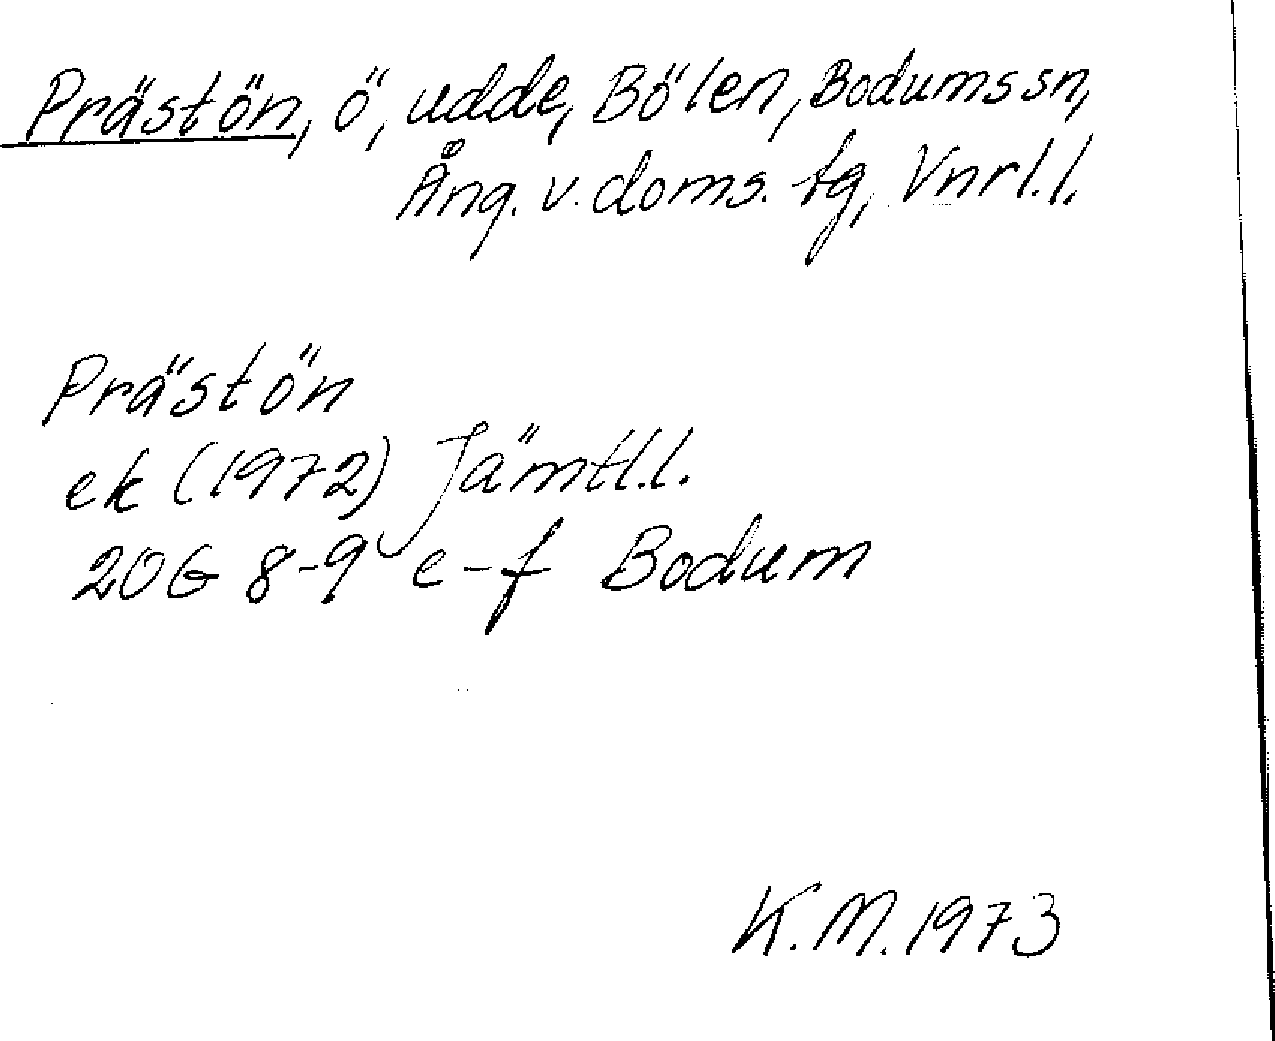 Prästön, ö, udde, Bölen, Bodums sn,
Ång. v. doms. tg, Vnrl. l.
Prästön
ek (1972) Jämtl. l.
20G 8-9 e-f Bodum
K.M. 1973